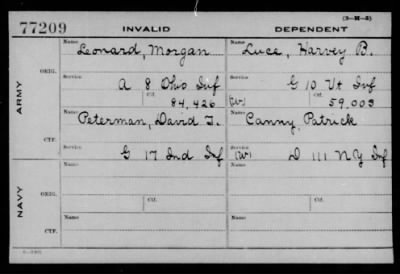 (3-M-5)
77209 INVALID DEPENDENT
ARMY
ORIG.
Name Leonard, Morgan Name Luce, Harvey B.
Service A 8 Ohio Inf Service G 10 Vt Inf
Ctf. 84,426 (W) Ctf. 59.003
CTF.
Name Peterman, David J. Name Canny, Patrick
Service G 17 Ind Inf Service (W) D 111 NY Inf
NAVY
ORIG.
Name Name
Service Ctf. Service Ctf.
CTF.
Name Name